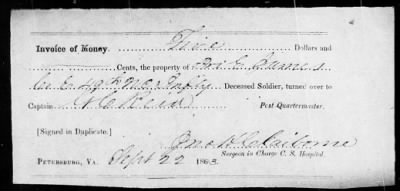 Invoice of Money. Five Dollars and
Cents, the property of Pri E. Barnes
Co E. 49th N.C. Infty Deceased Soldier, turned over to
Captain Post-Quartermaster.
[Signed in Duplicate.]
Jno H Claiborne
Surgeon in Charge C. S. Hospital.
Petersburg, Va. Sept 22 1863.